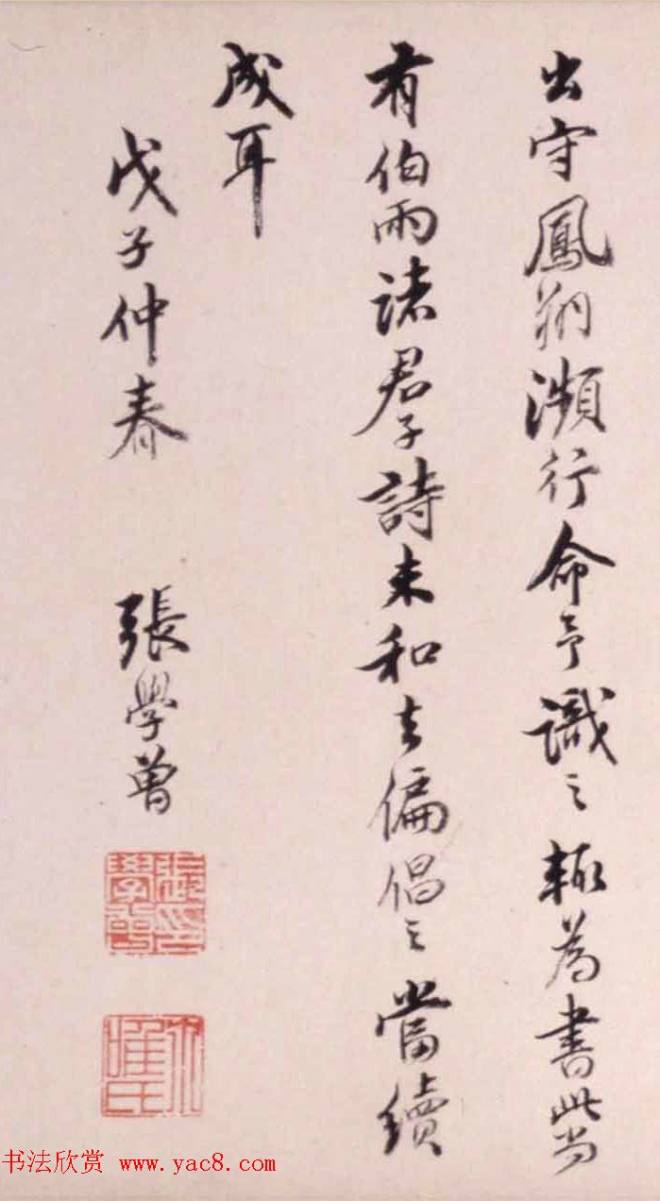 出守鳳翔瀕行命予識之輒為書此尚
有伯雨諸君子詩未和去偏倡之當續
成耳
戊子仲春 張學曾
張學曾印
書法欣赏 www.yac8.com